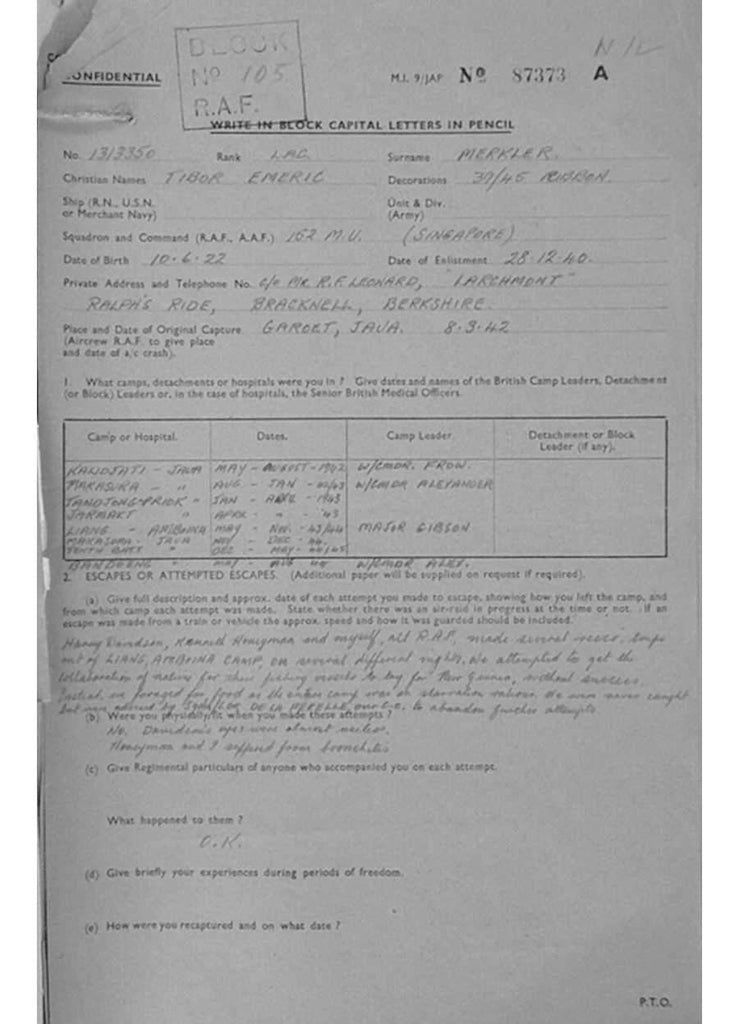 CONFIDENTIAL
BLOCK
Nº 105
R.A.F.
NIL
M.I. 9/JAP Nº 87373 A
WRITE IN BLOCK CAPITAL LETTERS IN PENCIL
No. 1313350 Rank LAC. Surname MERKLER.
Christian Names TIBOR EMERIC Decorations 39/45 RIBBON.
Ship (R.N., U.S.N. or Merchant Navy) Unit & Div. (Army)
Squadron and Command (R.A.F., A.A.F.) 152 M.U. (SINGAPORE)
Date of Birth 10.6.22 Date of Enlistment 28.12.40.
Private Address and Telephone No. C/O R.F. LEONARD, "LARCHMONT"
RALPH'S RIDE, BRACKNELL, BERKSHIRE.
Place and Date of Original Capture GAROET, JAVA. 8.3.42
(Aircrew R.A.F. to give place
and date of a/c crash).
1. What camps, detachments or hospitals were you in ? Give dates and names of the British Camp Leaders, Detachment
(or Block) Leaders or, in the case of hospitals, the Senior British Medical Officers.
Camp or Hospital. Dates. Camp Leader Detachment or Block Leader (if any).
KALIDJATI - JAVA MAY - AUGUST - 1942 W/CMDR. FROW.
MAKASURA - " AUG - JAN - 42/43 W/CMDR ALEXANDER
TANDJONG-PRIOK " JAN - APRIL - 1943
JARMARKT " APRIL - " - '43
LIANG - AMBOINA MAY - NOV. - 43/44 MAJOR GIBSON
MAKASURA - JAVA NOV - DEC - 44.
TENTH BATT " DEC - MAY - 44/45
BANDOENG " MAY - AUG 45 W/CMDR ALEX.
2. ESCAPES OR ATTEMPTED ESCAPES. (Additional paper will be supplied on request if required).
(a) Give full description and approx. date of each attempt you made to escape, showing how you left the camp, and
from which camp each attempt was made. State whether there was an air-raid in progress at the time or not. If an
escape was made from a train or vehicle the approx. speed and how it was guarded should be included.
Harry Davidson, Kenneth Honeyman and myself, all R.A.F., made several trips
out of LIANG, AMBOINA CAMP, on several different nights. We attempted to get the
collaboration of natives for their fishing vessels to try for New Guinea, without success.
Instead, we foraged for food as the entire camp was on starvation rations. We were never caught
but were advised by DE LA PERELLE our C.O. to abandon further attempts.
(b) Were you physically fit when you made these attempts ?
No. Davidson's eyes were almost useless.
Honeyman and I suffered from bronchitis
(c) Give Regimental particulars of anyone who accompanied you on each attempt.
What happened to them ?
O.K.
(d) Give briefly your experiences during periods of freedom.
(e) How were you recaptured and on what date ?
P.T.O.